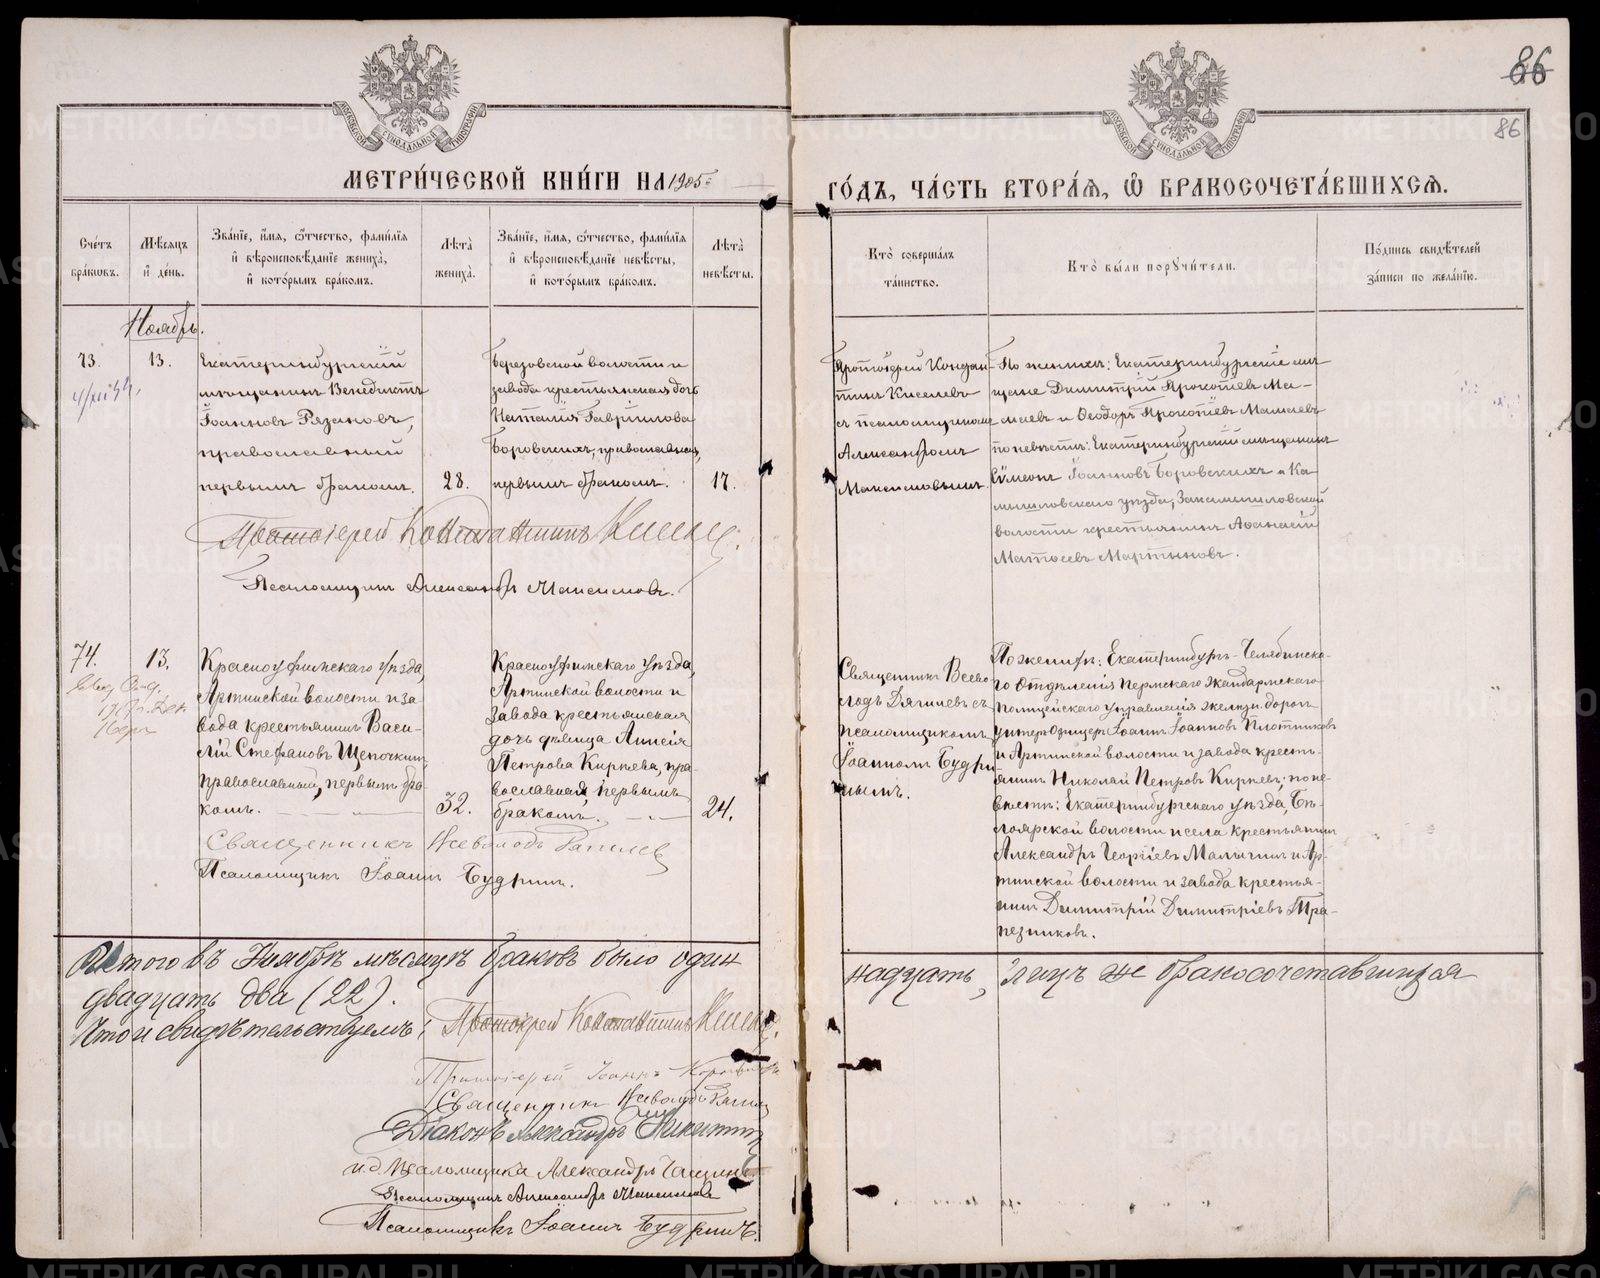 86
86
МЕТРИЧЕСКОЙ КНИГИ НА 1905 ГОДЪ, ЧАСТЬ ВТОРАЯ, Ѡ БРАКОСОЧЕТАВШИХСЯ.
Счетъ браковъ.
Мѣсяцъ и день.
Званіе, имя, отчество, фамилія и вѣроисповѣданіе жениха, и которымъ бракомъ.
Лѣта жениха.
Званіе, имя, отчество, фамилія и вѣроисповѣданіе невѣсты, и которымъ бракомъ.
Лѣта невѣсты.
Кто совершалъ таинство.
Кто были поручители.
Подпись свидѣтелей записи по желанію.
Ноябрь.
73.
13.
Екатеринбургскій
мѣщанинъ Венедиктъ
Іоанновъ Рязановъ,
православный
первымъ бракомъ.
28.
Березовской волости и
завода крестьянская дочь
Наталія Гавріилова
Боровскихъ, православная,
первымъ бракомъ.
17.
Протоіерей Констан-
тинъ Киселевъ
съ псаломщикомъ
Александромъ
Максимовымъ
По женихѣ: Екатеринбургскіе мѣ-
щане Димитрій Прокопіевъ Ма-
маевъ и Ѳеодоръ Прокопіевъ Мамаевъ
по невѣстѣ: Екатеринбургскій мѣщанинъ
Сѵмеонъ Іоанновъ Боровскихъ и Ка-
мышловскаго уѣзда, Закамышловской
волости крестьянинъ Аѳанасій
Матѳеевъ Мартыновъ.
Протоіерей Константинъ Киселев.
Псаломщикъ Александръ Максимовъ.
74.
13.
Красноуфимскаго уѣзда,
Артинской волости и за-
вода крестьянинъ Васи-
лій Стефановъ Щепочкинъ,
православный, первымъ бра-
комъ.
32.
Красноуфимскаго уѣзда,
Артинской волости и
завода крестьянская
дочь дѣвица Анисія
Петрова Кирпева, пра-
вославная, первымъ
бракомъ.
24.
Священникъ Всево-
лодъ Дягилевъ съ
псаломщикомъ
Іоанномъ Будри-
нымъ.
По женихѣ: Екатеринбургъ-Челябинска-
го Отдѣленія Пермскаго Жандармскаго
Полицейскаго Управленія желѣзн. дорогъ
унтеръ-офицеръ Іоаннъ Іоанновъ Плотниковъ
и Артинской волости и завода кресть-
янинъ Николай Петровъ Кирпевъ; по не-
вѣстѣ: Екатеринбургскаго уѣзда, Бѣ-
лоярской волости и села крестьянинъ
Александръ Георгіевъ Малыгинъ и Ар-
тинской волости и завода крестья-
нинъ Димитрій Димитріевъ Тра-
пезниковъ.
Священникъ Всеволодъ Дягилев
Псаломщикъ Іоаннъ Будринъ.
Итого въ Ноябрѣ мѣсяцѣ браковъ было один
надцать, лицъ же бракосочетавшихся
двадцать два (22).
Что и свидѣтельствуемъ: Протоіерей Константинъ Киселев.
Протоіерей Іоаннъ
Священникъ Всеволодъ Дягилев
Діаконъ Александръ Никитинъ
и.д. Псаломщика Александръ
Псаломщикъ Александръ Максимовъ
Псаломщикъ Іоаннъ Будринъ.
METRIKI.GASO-URAL.RU